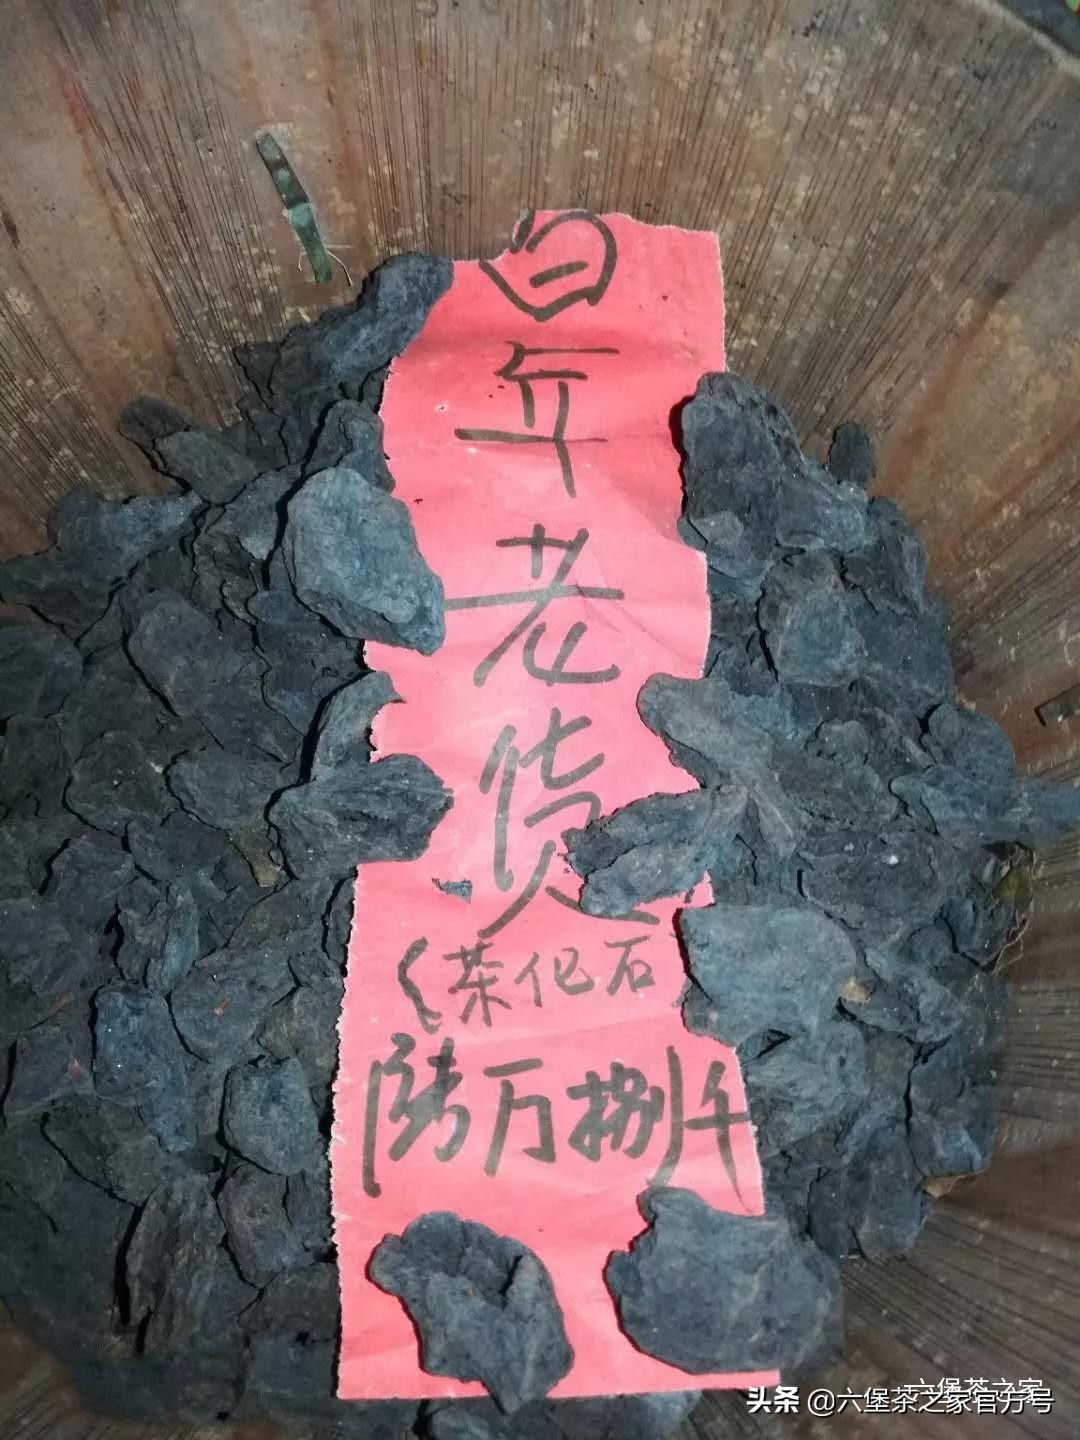 百年老货
(茶化石)
陆万捌仟
六堡茶之家
头条 @六堡茶之家官方号